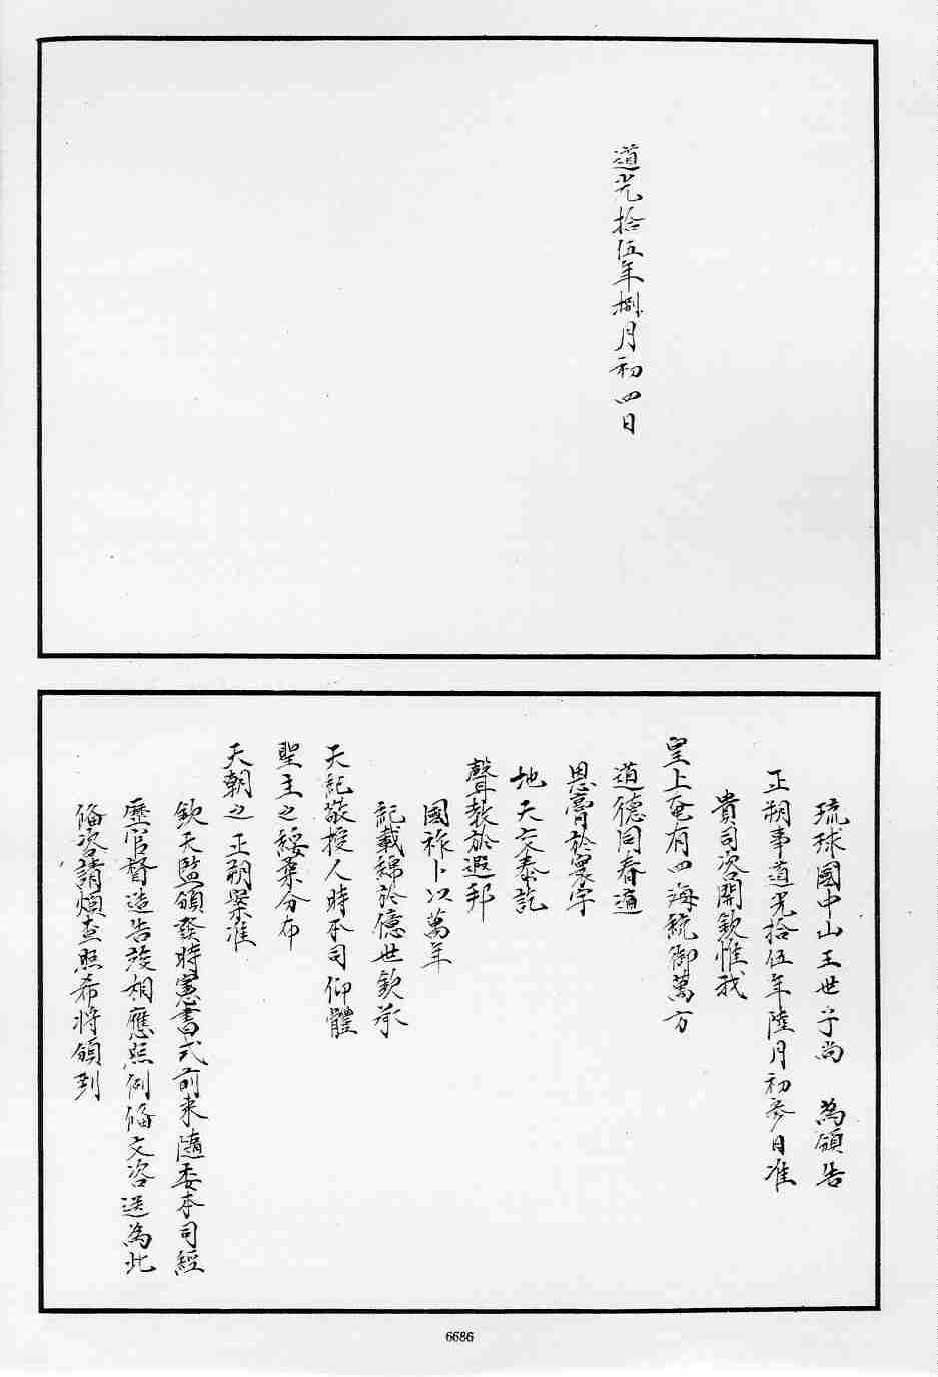 道光拾伍年捌月初四日
琉球國中山王世子尚　為頒告
正朔事道光拾伍年陸月初參日准
貴司咨開欽惟我
皇上奄有四海統御萬方
道德同春適
恩膏於寰宇
地天交泰訖
聲教於遐邦
國祚卜以萬年
記載綿於億世欽承
天記敬授人時本司仰體
聖主之綏柔分布
天朝之正朔案准
欽天監頒發時憲書式前來隨委本司經
歷官督造告竣相應照例備文咨送為此
備咨請煩查照希將頒到
6686